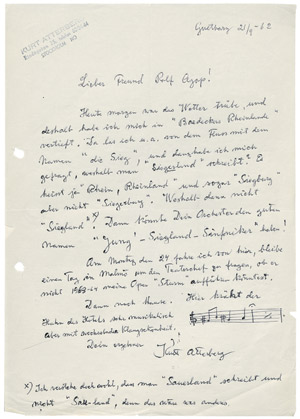 KURT ATTERBERG
STOCKHOLM NO
Göteborg 21/9 - 62
Lieber Freund Rolf Agop!
Heute morgen war das Wetter trübe und
deshalb habe ich mich in "Baedekers Rheinlande"
vertieft. Da las ich u.a. von dem Fluss mit dem
Namen "die Sieg", und dann habe ich mich
gefragt, weshalb man "Siegerland" schreibt? Es
heisst ja Rhein, Rheinland und sogar "Siegburg"
aber nicht "Siegerburg". Weshalb denn nicht
"Siegland"? x) Dann könnte Dein Orchester den guten
Namen "Jung-Siegland-Sinfoniker" haben!
Am Montag den 24 fahre ich von hier, bleibe
einen Tag in Malmö um den Theaterchef zu fragen, ob er
nicht 1963 meine Oper "Sturm" aufführen könnte.
Dann nach Hause. Hier kräht der
Hahn des Hotels sehr musikalisch
aber mit
Dein ergebener
Kurt Atterberg
x) Ich verstehe doch wohl, dass man "Sauerland" schreibt und
nicht "Sauland", denn das wäre was anders